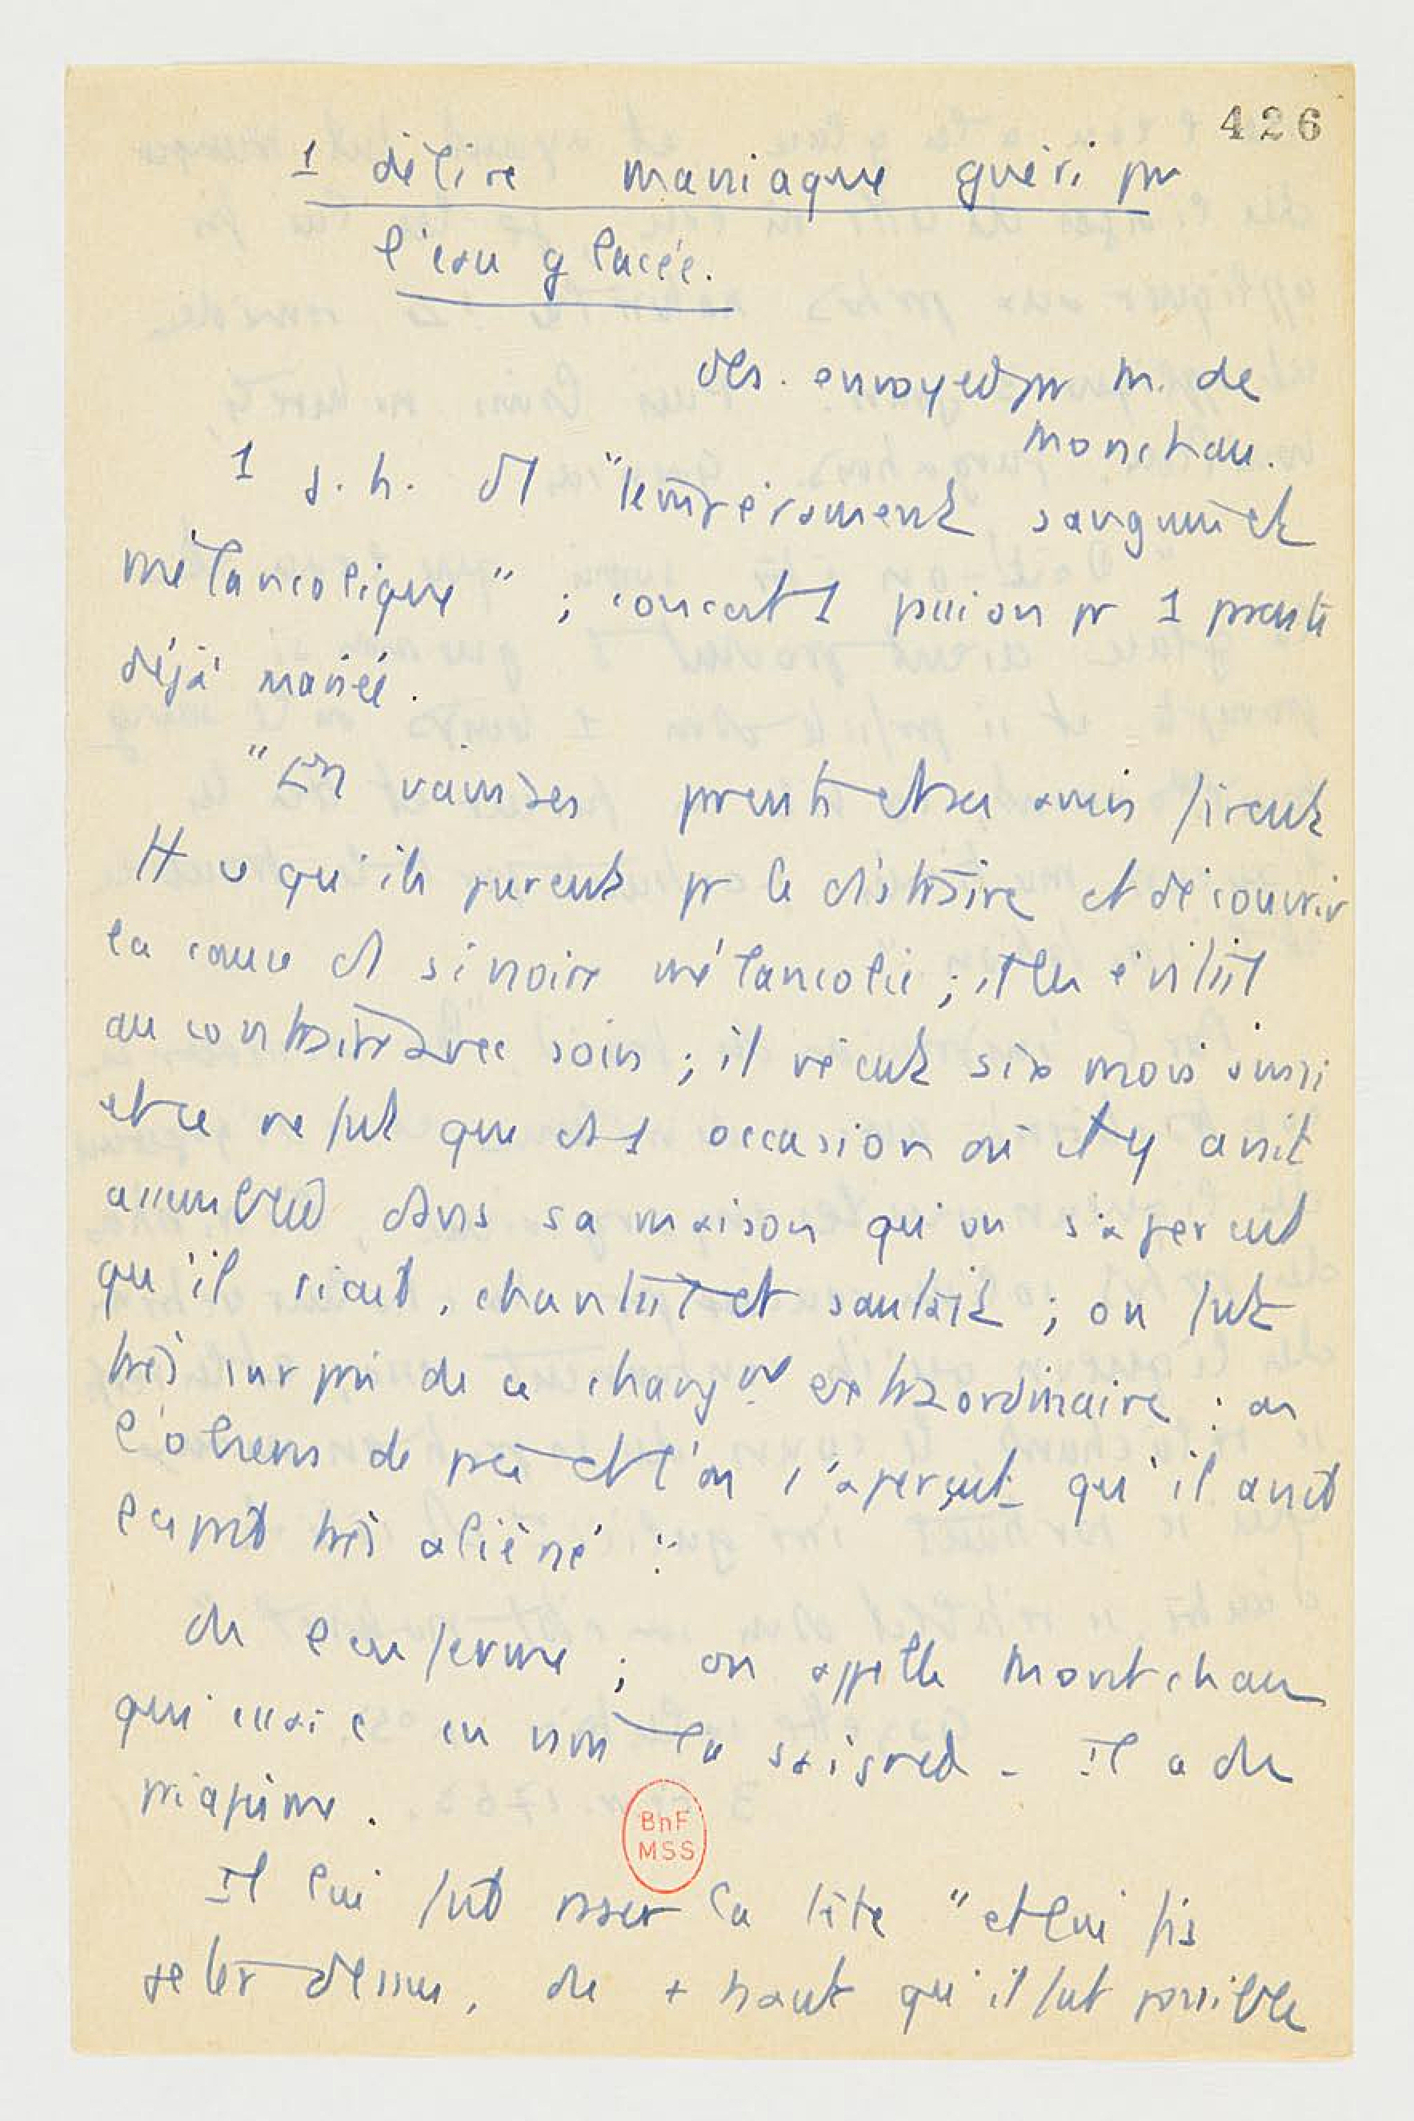 426
1 délire maniaque guéri pr
l'eau glacée.
Obs. envoyée pr M. de
Monchau.
1 j. h. d'1 "tempérament sanguin et
mélancolique" ; conçut 1 passion pr 1 parente
déjà mariée.
"En vain ses parents et ses amis firent
tt ce qu'ils purent pr le distraire et découvrir
la cause d'1 si noire mélancolie ; il les évitait
au contraire avec soin ; il vécut six mois ainsi
et ce ne fut que ds 1 occasion où il y avait
assemblée dans sa maison qu'on s'aperçut
qu'il riait, chantait et sautait ; on fut
très surpris de ce changt extraordinaire : on
l'observa de près et l'on s'aperçut qu'il avait
l'esprit très aliéné".
On l'enferme ; on appelle Montchau
qui essaie en vain la saignée - Il a du
priapisme.
Il lui fait raser la tête "et lui fis
jeter dessus, du + haut qu'il fut possible
BnF
MSS